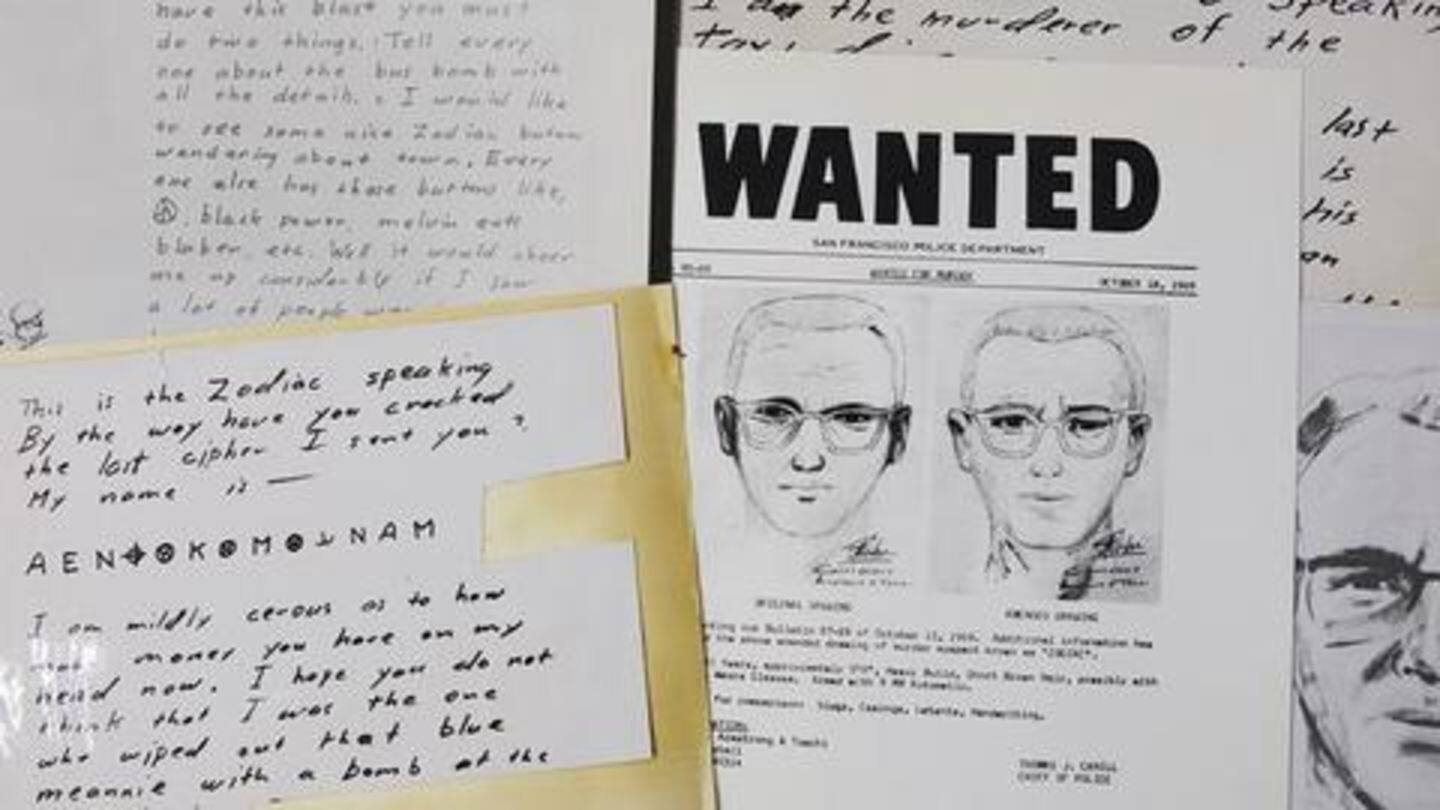 have this blast you must
do two things. Tell every
one about the bus bomb with
all the details. I would like
to see some nice Zodiac butons
wendering about town. Every
one else has these buttons like,
black power, melvin eats
bluber etc. Well it would cheer
me up considerbly if I saw
a lot of people
This is the Zodiac speaking
By the way have you cracked
the last cipher I sent you ?
My name is —
A E N K M N A M
I am mildly cerous as to how
money you have on my
head now. I hope you do not
think that I was the one
who wiped out that blue
meannie with a bomb at the
speaking
I am the murderer of the
last
is
this
an
WANTED
SAN FRANCISCO POLICE DEPARTMENT
WANTED FOR MURDER
OCTOBER 18, 1969
ORIGINAL DRAWING
AMENDED DRAWING
our Bulletin 87-69 of October 13, 1969. Additional information has
the above amended drawing of murder suspect known as "ZODIAC".
Years, approximately 5'8", Heavy Build, Short Brown Hair, possibly with
Glasses. Armed with 9 MM Automatic.
for comparison: Slugs, Casings, Latents, Handwriting.
Armstrong & Toschi
THOMAS J. CAHILL
CHIEF OF POLICE